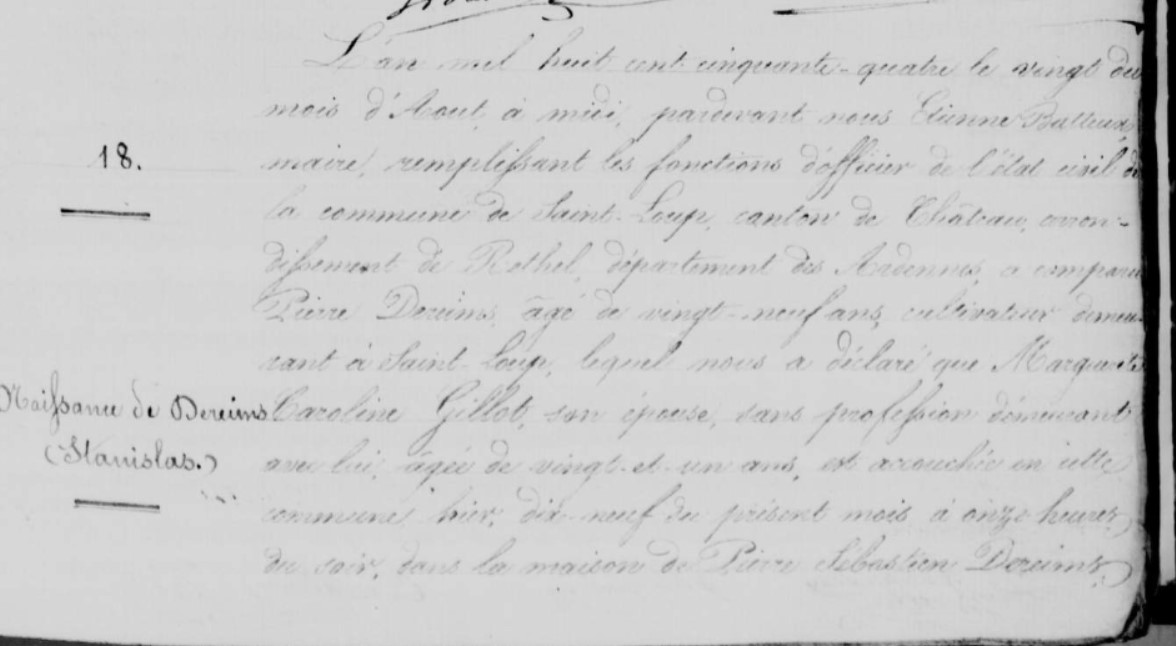 L'an mil huit cent cinquante-quatre le vingt du
mois d'Aout, à midi, pardevant nous Etienne Balteux,
18.
maire, remplissant les fonctions d'officier de l'état civil de
la commune de Saint-Loup, canton de Château, arron-
dissement de Rethel, département des Ardennes, a comparu
Pierre Dereims, âgé de vingt-neuf ans, cultivateur demeu-
rant à Saint-Loup, lequel nous a déclaré que Marguerite
Naissance de Dereims
(Stanislas.)
Caroline Gillot, son épouse, sans profession demeurant
avec lui, âgée de vingt-et-un ans, est accouchée en cette
commune hier, dix-neuf du présent mois à onze heures
du soir, dans la maison de Pierre Sébastien Dereims,